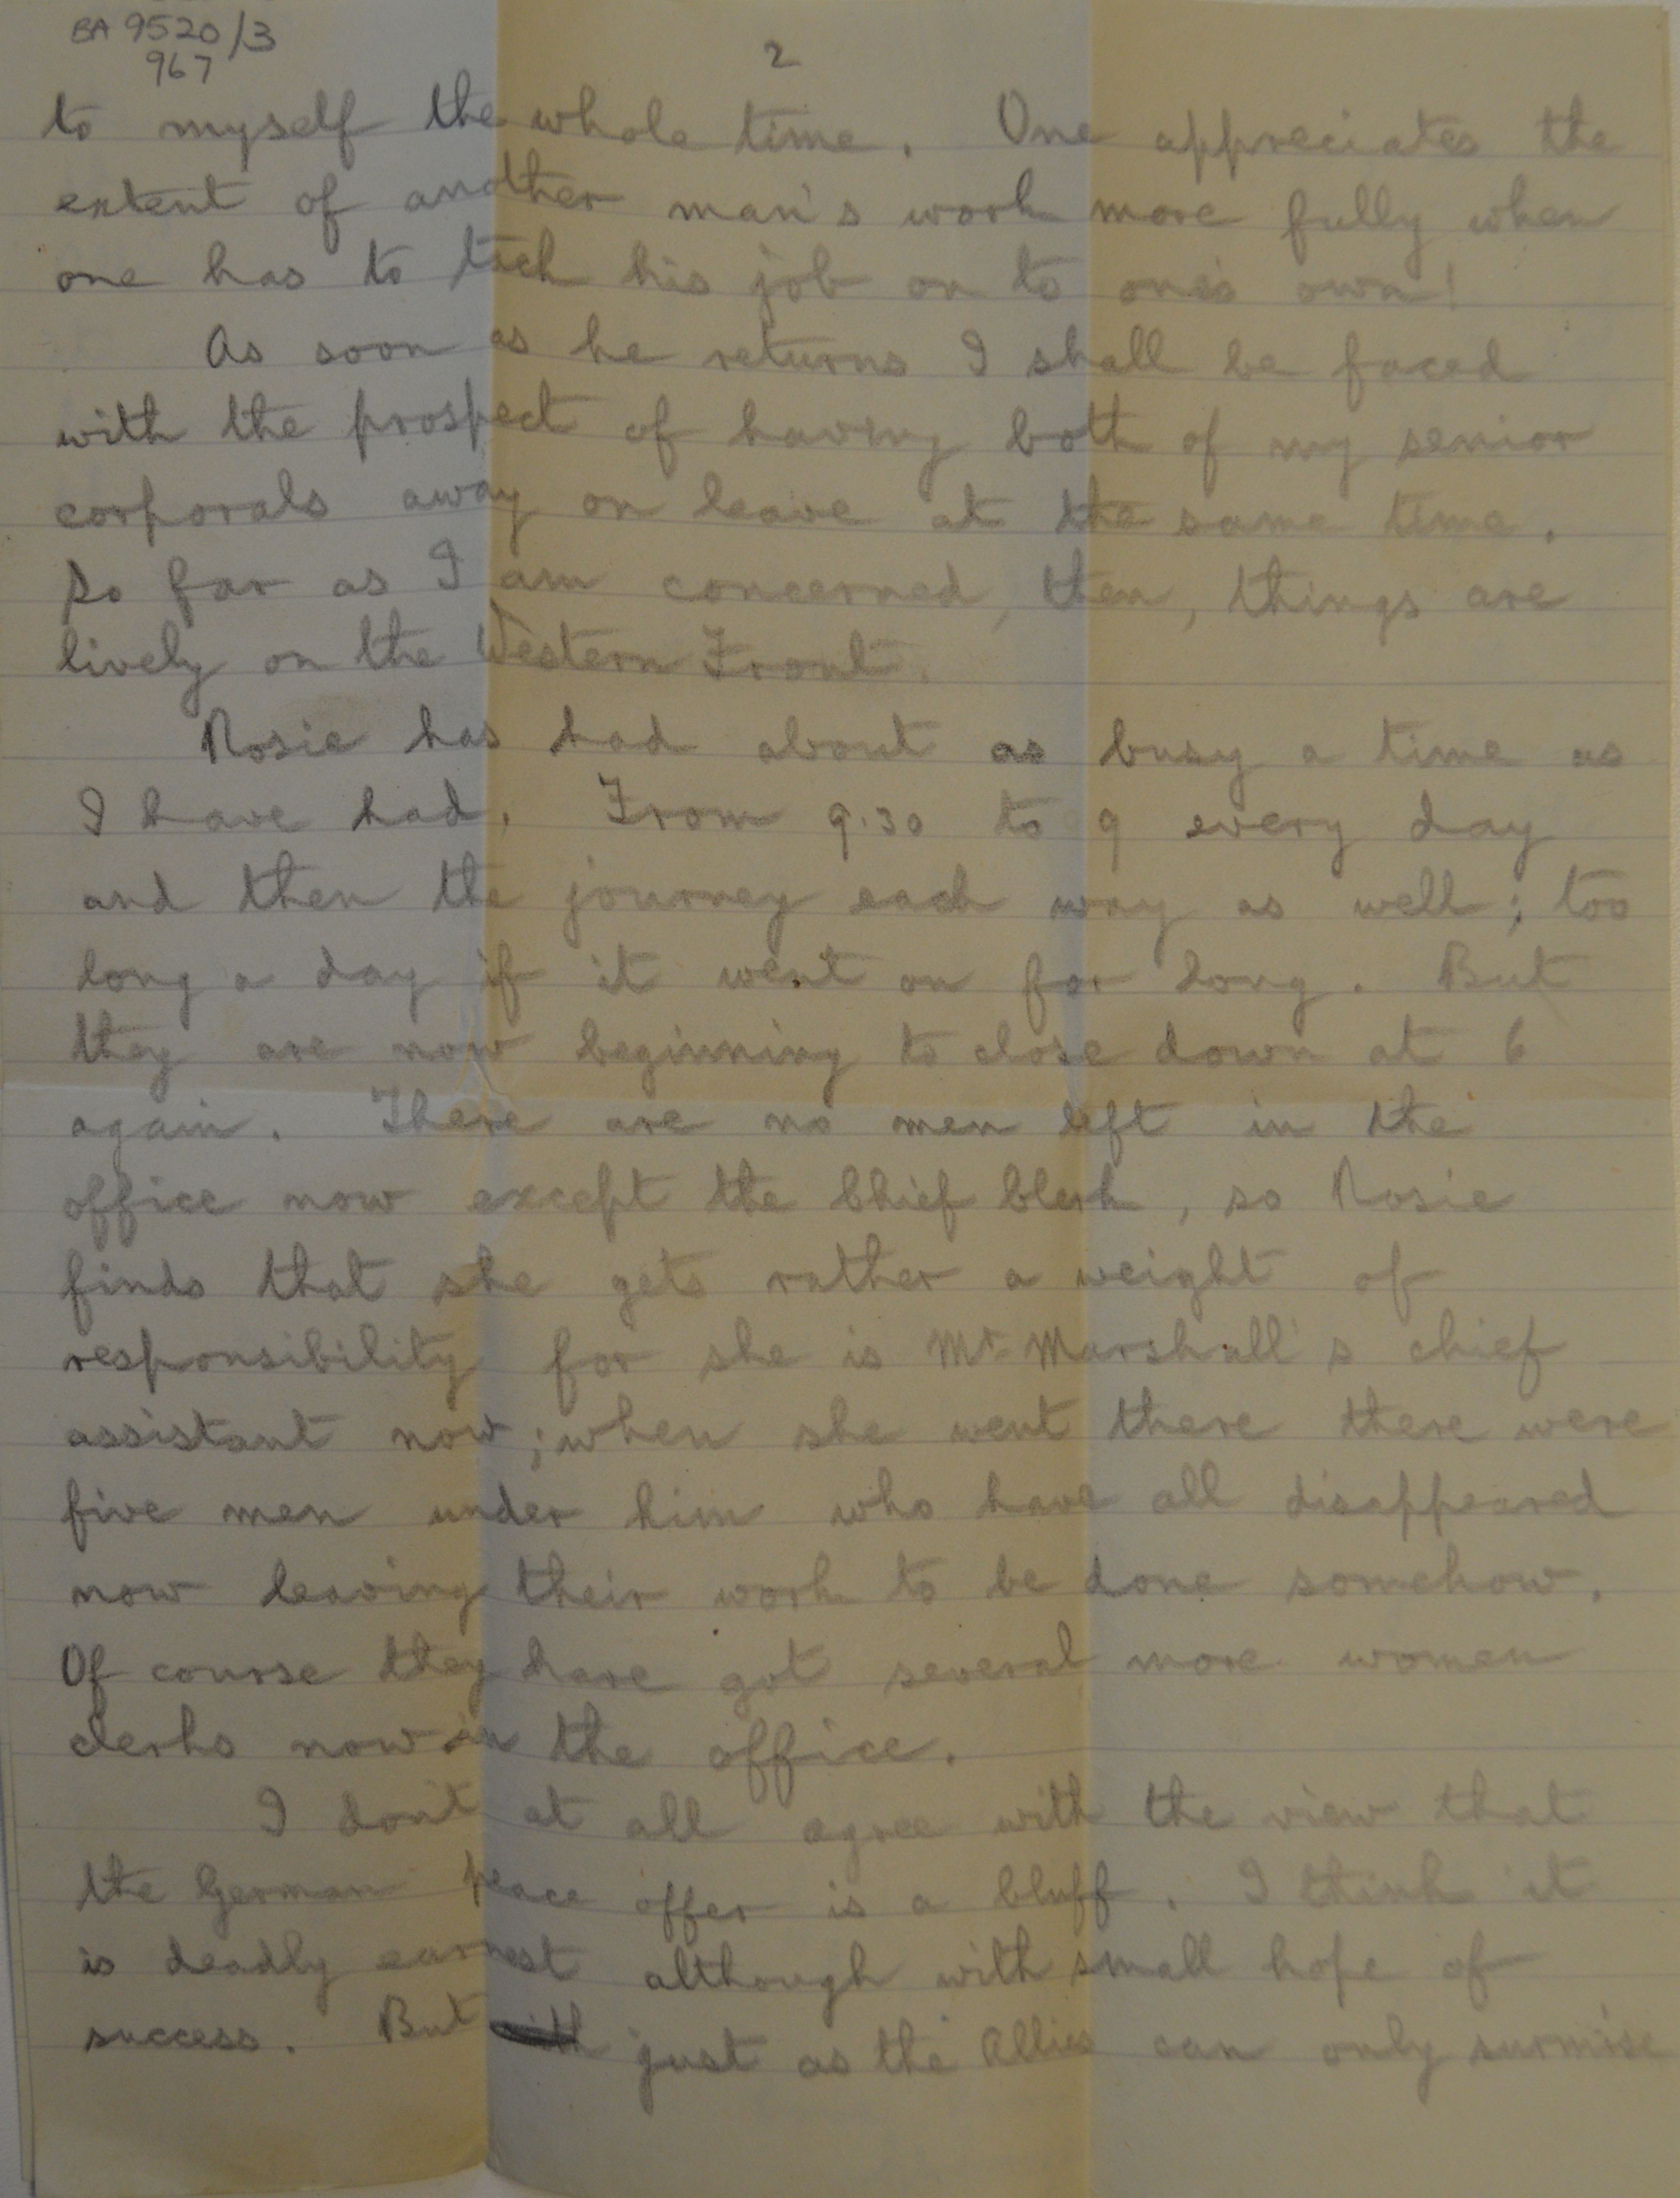 BA 9520/3
967
2
to myself the whole time. One appreciates the
extent of another man's work more fully when
one has to tack his job on to one's own!
As soon as he returns I shall be faced
with the prospect of having both of my senior
corporals away on leave at the same time.
So far as I am concerned, then, things are
lively on the Western Front.
Rosie has had about as busy a time as
I have had. From 9.30 to 9 every day
and then the journey each way as well; too
long a day if it went on for long. But
they are now beginning to close down at 6
again. There are no men left in the
office now except the Chief Clerk, so Rosie
finds that she gets rather a weight of
responsibility for she is Mr. Marshall's chief
assistant now; when she went there there were
five men under him who have all disappeared
now leaving their work to be done somehow.
Of course they have got several more women
clerks now in the office.
I don't at all agree with the view that
the German peace offer is a bluff. I think it
is deadly earnest although with small hope of
success. But just as the Allies can only surmise